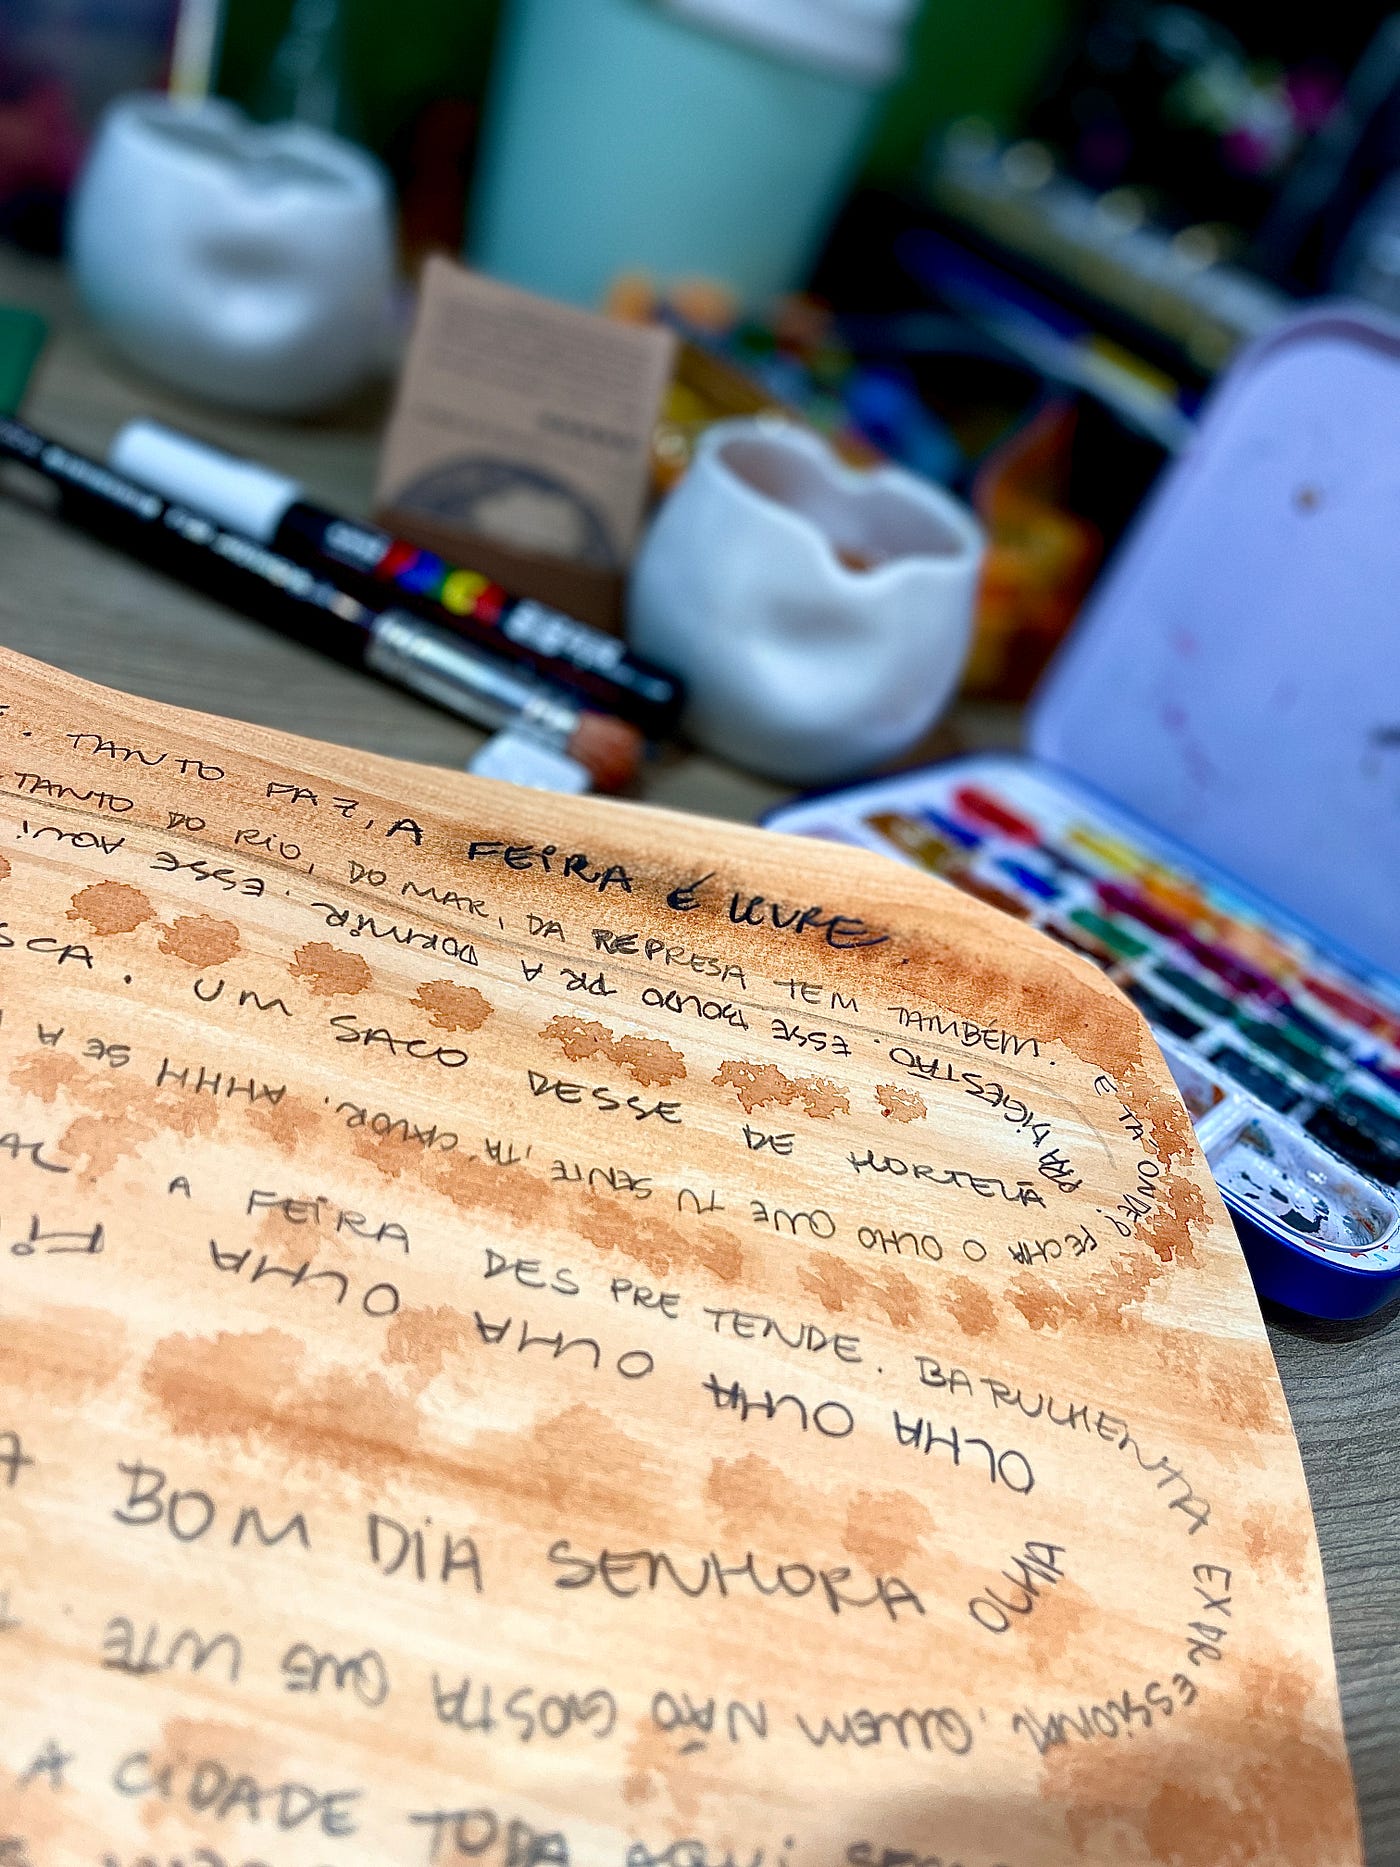 TANTO FAZ, A FEIRA É LIVRE.
TANTO DO RIO, DO MAR, DA REPRESA TEM TAMBÉM. E TÁ ONDE?
FECHA O OLHO QUE TU SENTE, AHHH SE A
UM SACO DESSE DE HORTELÃ
PRA DIGESTÃO. ESSE BOLDO PRA DORMIR. ESSE AQUI
A FEIRA DES PRE TENDE. BARULHENTA EXPRESSIONAL.
QUEM NÃO GOSTA QUE LUTE
BOM DIA SENHORA
OLHA OLHA OLHA OLHA OLHA
A CIDADE TODA AQUI